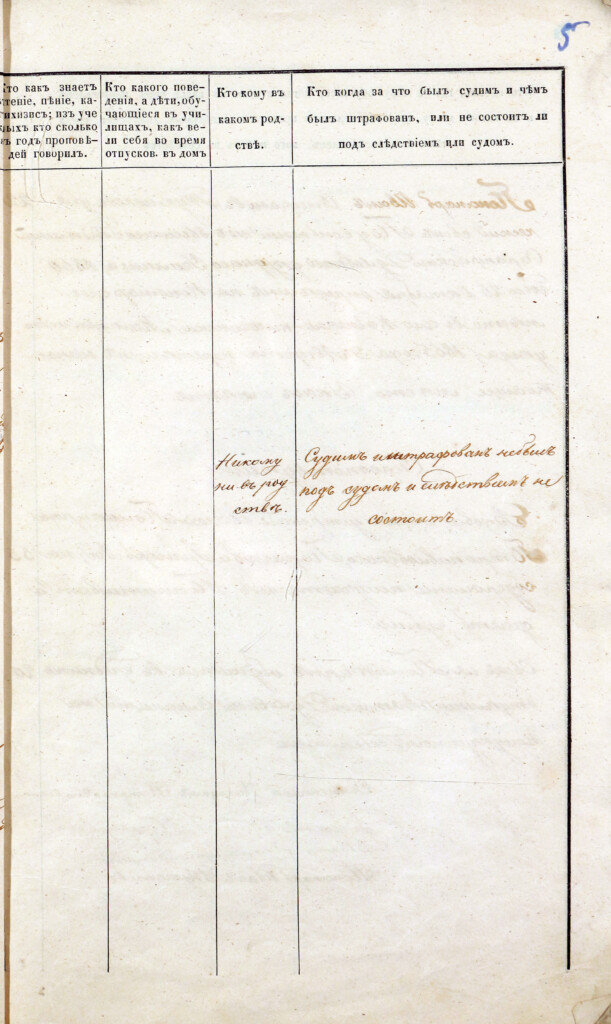 5
Кто какъ знаетъ
чтеніе, пѣніе, ка-
тихизисъ; изъ уче
ныхъ кто сколько
въ годъ проповѣ-
дей говорилъ.
Кто какого пове-
денія, а дѣти, обу-
чающіеся въ учи-
лищахъ, какъ ве-
ли себя во время
отпусков. въ домъ
Кто кому въ
какомъ род-
ствѣ.
Кто когда за что былъ судимъ и чѣмъ
былъ штрафованъ, или не состоитъ ли
подъ слѣдствіемъ цли судомъ.
Никому
ни въ род
ствѣ.
Судимъ и штрафованъ небылъ
подъ судомъ и слѣдствіемъ не
состоитъ.